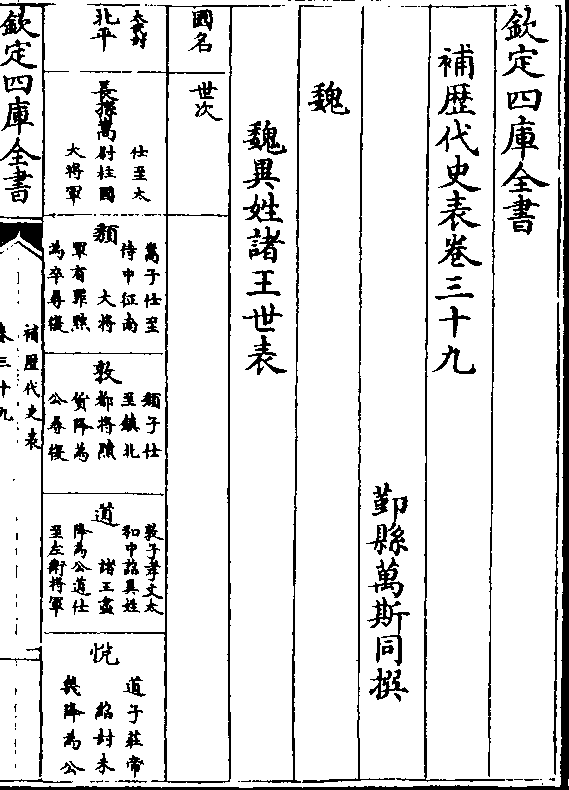 欽定四庫全書
補歴代史表卷三十九
鄞縣萬斯同撰
魏
魏異姓諸王世表
國名
世次
北平
太武封
長孫嵩
仕至太
尉柱國
大將軍
頹
嵩子仕至
侍中征南
大將
軍有罪黜
為卒尋復
敦
頹子仕
至鎮北
都將黷
貨降為
公尋復
道
敦子孝文太
和中詔異姓
諸王盡
降為公道仕
至左衛將軍
悅
道子莊帝
紹封未
幾降為公
欽定四庫全書
補歴代史表
卷三十九